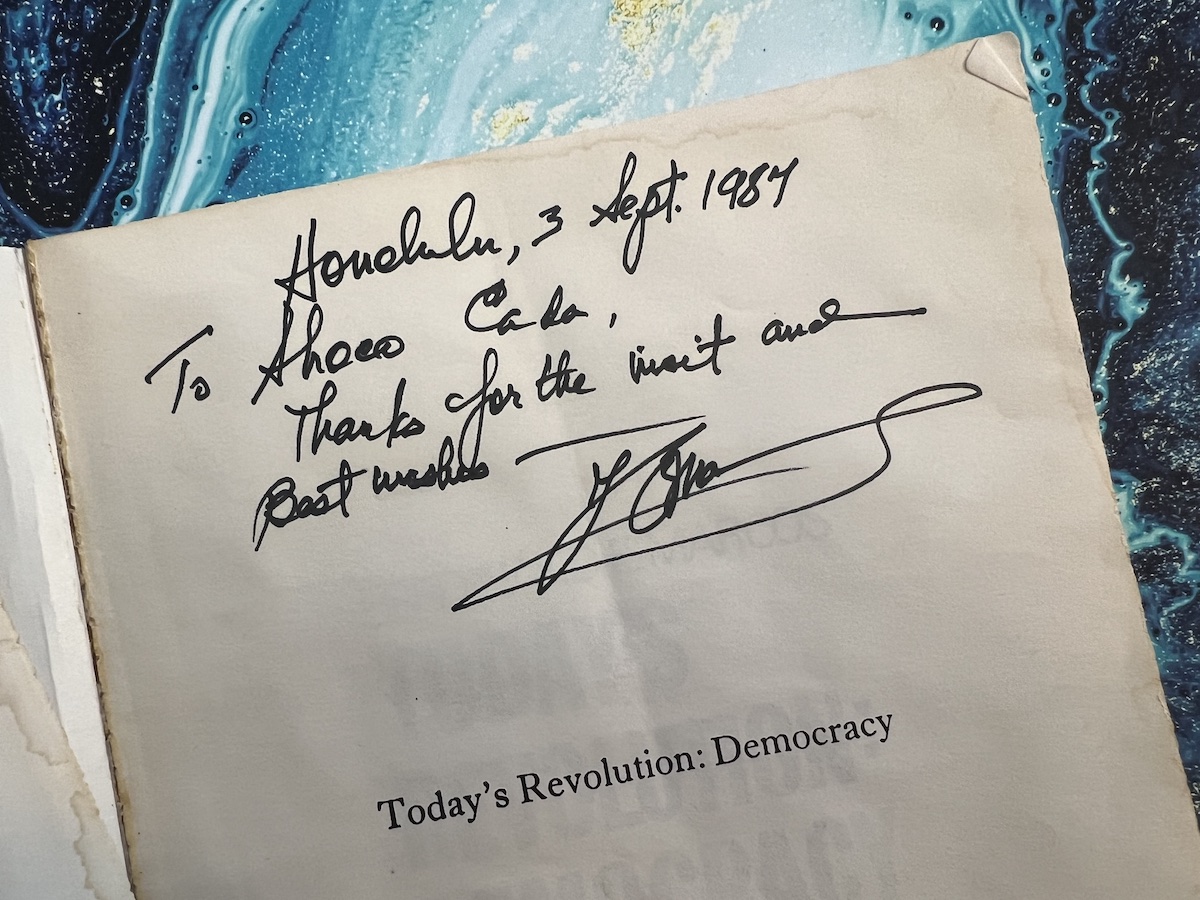 Honolulu, 3 Sept. 1987
To Shoco Cada,
Thanks for the visit and
Best wishes
Today's Revolution: Democracy